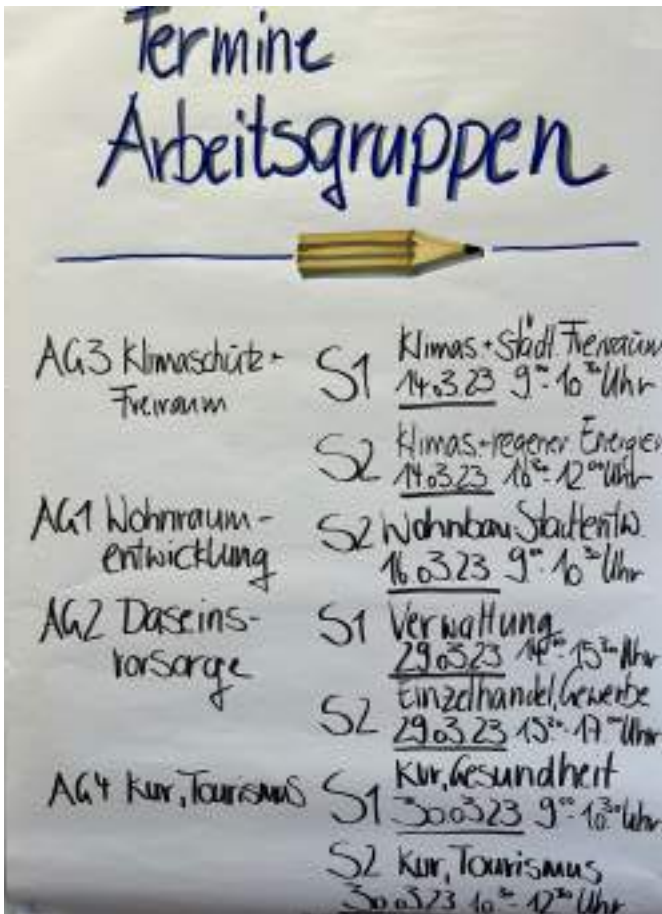 Termine
Arbeitsgruppen
AG3 Klimaschutz +
Freiraum
S1 Klimas. + Städt. Freiraum
14.03.23 9⁰⁰ - 10³⁰ Uhr
S2 Klimas. + regener. Energien
14.03.23 10³⁰ - 12⁰⁰ Uhr
AG1 Wohnraum-
entwicklung
S2 Wohnbau, Stadtentw.
16.03.23 9⁰⁰ - 10³⁰ Uhr
AG2 Daseins-
vorsorge
S1 Verwaltung
29.03.23 14⁰⁰ - 15³⁰ Uhr
S2 Einzelhandel, Gewerbe
29.03.23 15³⁰ - 17⁰⁰ Uhr
AG4 Kur, Tourismus
S1 Kur, Gesundheit
30.03.23 9⁰⁰ - 10³⁰ Uhr
S2 Kur, Tourismus
30.03.23 10³⁰ - 12³⁰ Uhr